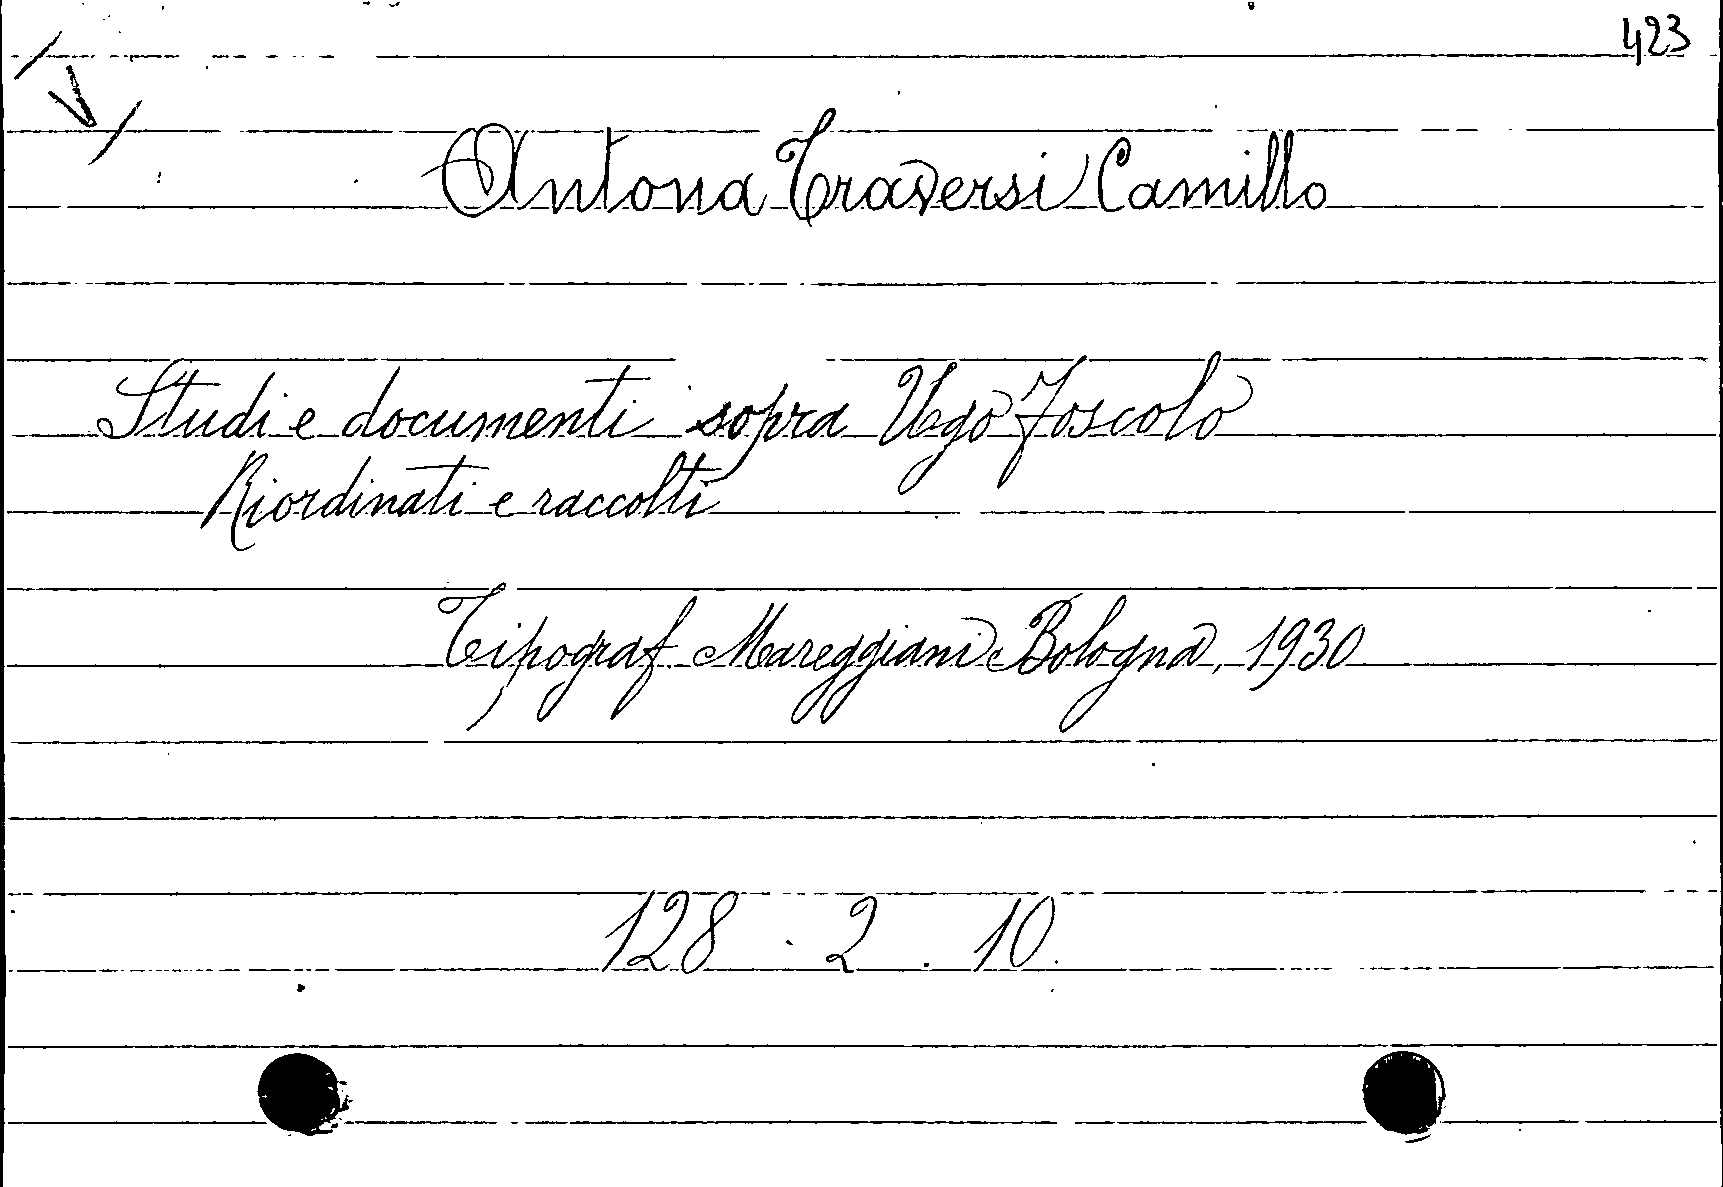 423
V
Antona Traversi Camillo
Studi e documenti sopra Ugo Foscolo
Riordinati e raccolti
Tipograf Mareggiani Bologna, 1930
128 . 2 . 10.